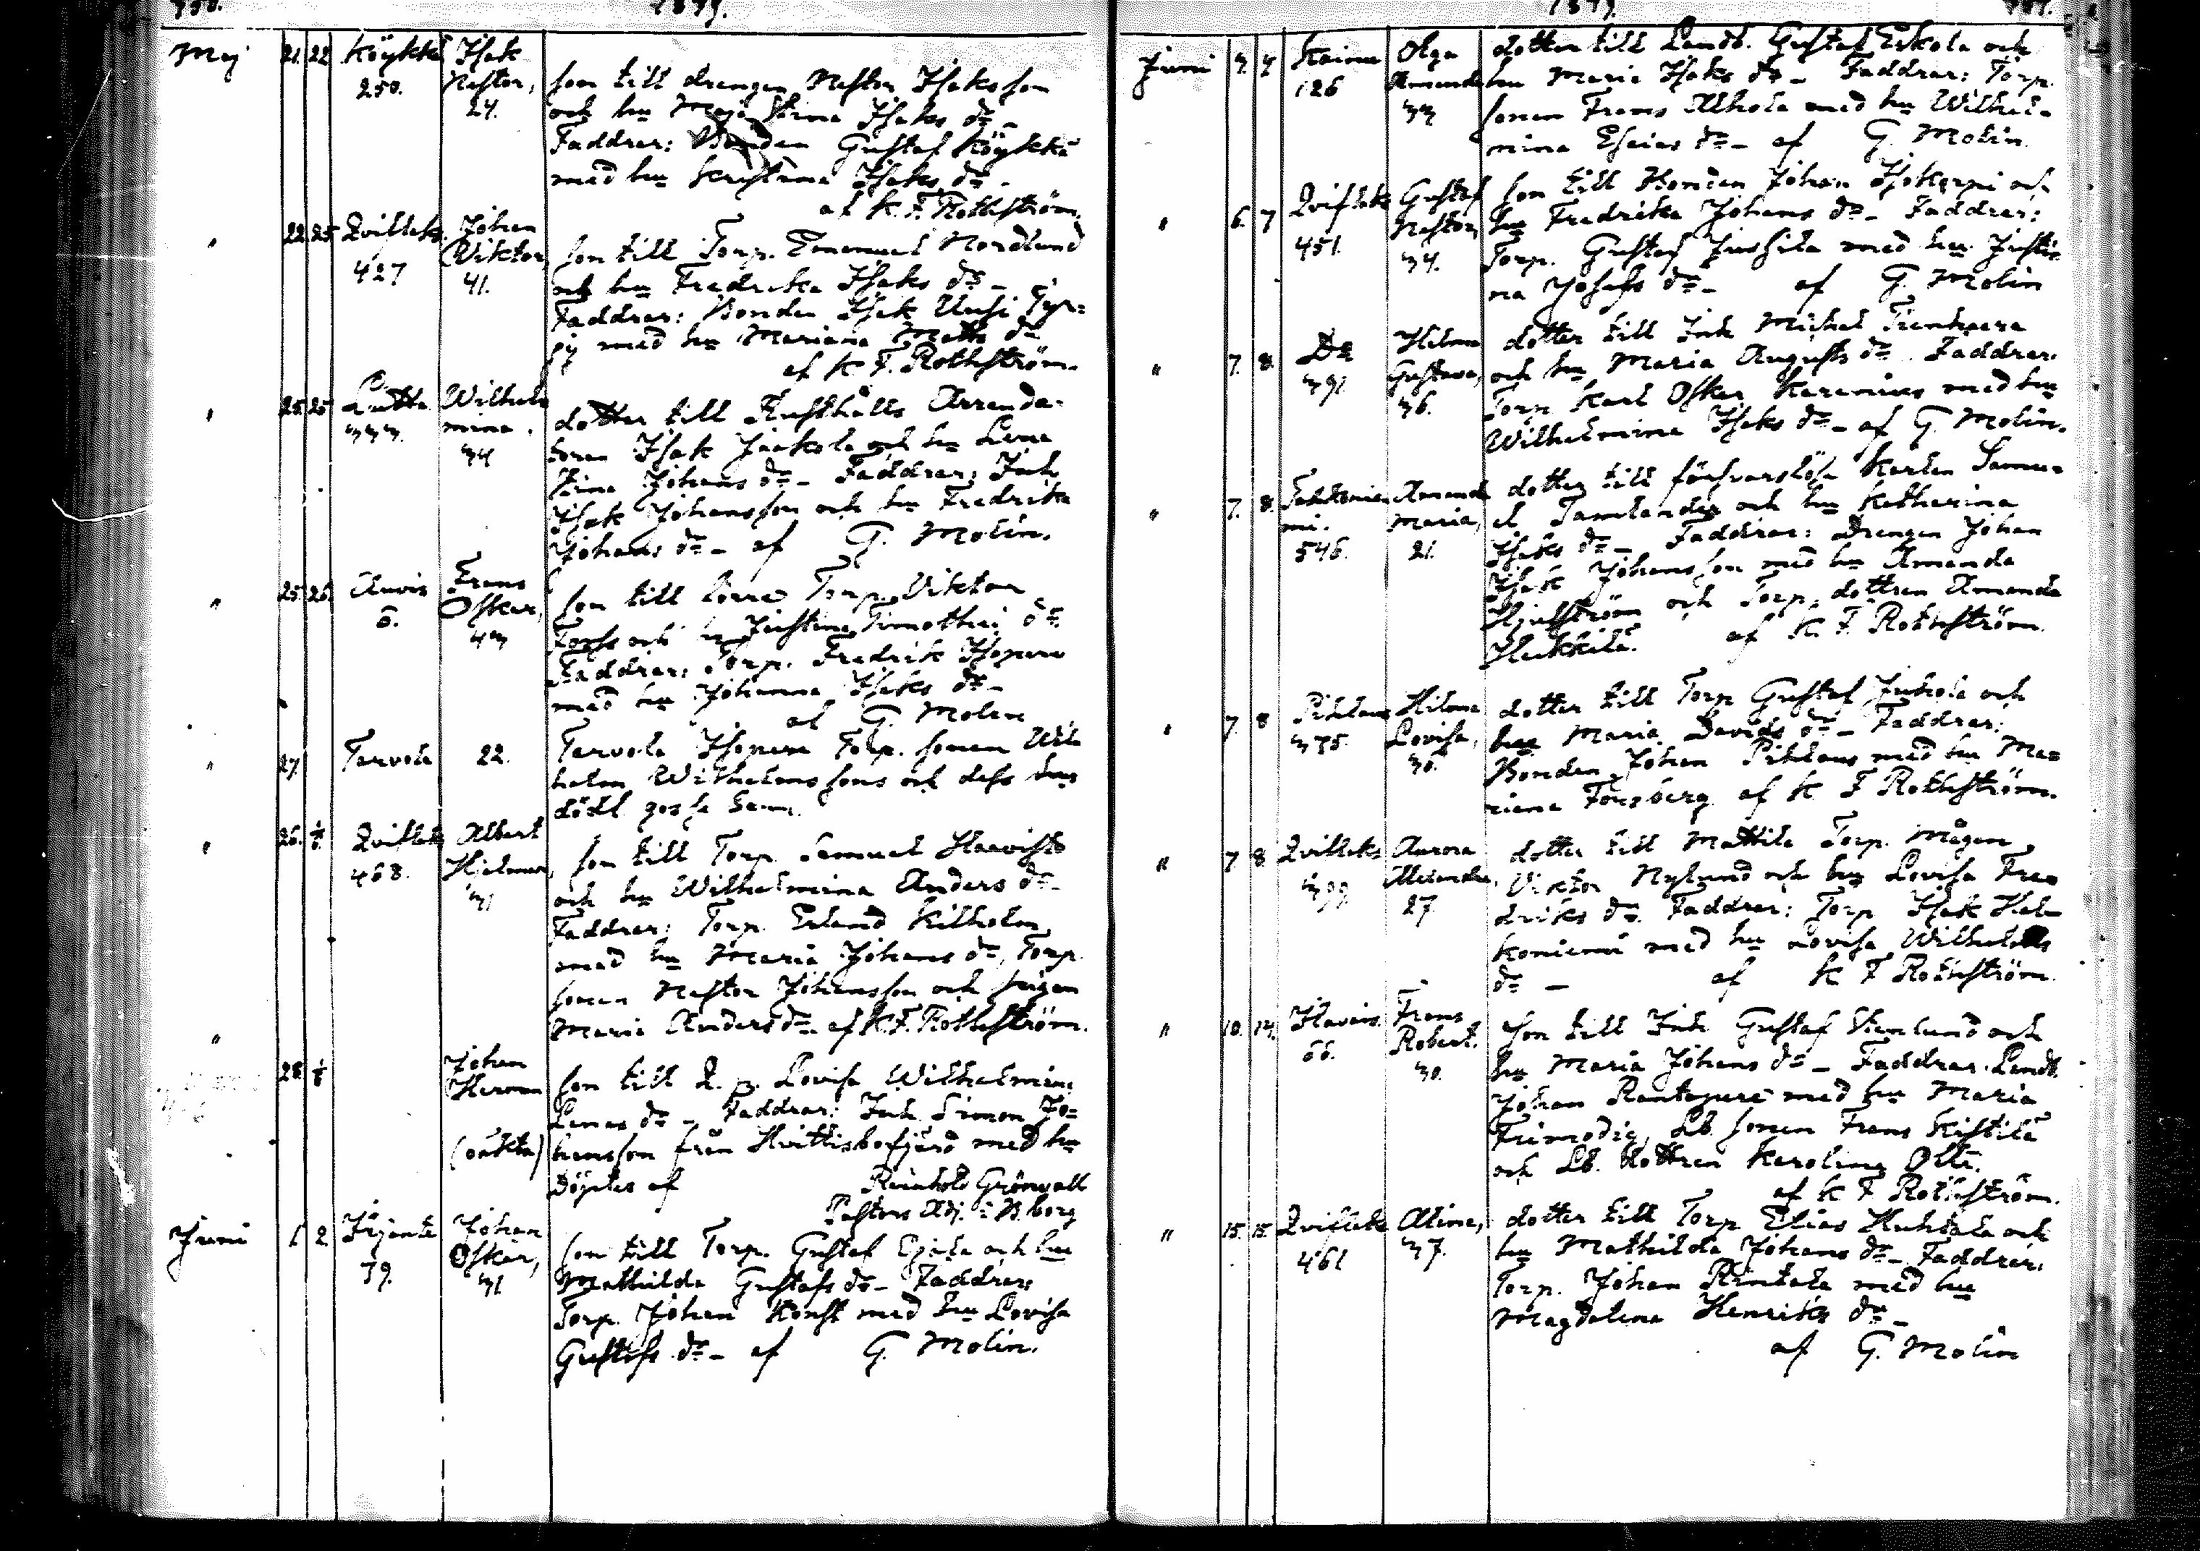 1879.
Maj 21. 22 Köykkä Isak
250. Nestor,
24.
son till drengen Nestor Isaksson
och hu Maja Stina Isaks dr -
Faddrar: Bonden Gustaf Köykkä
med hu Kristina Isaks dr -
af K. F. Rothström.
" 22 25 Johan
427 Viktor,
41.
son till Torp. Emanuel Nordlund
och hu Fredrika Isaks dr -
Faddrar: Bonden Isak Uusi
med hu Mariana Matts dr
af K. F. Rothström.
" 25 25 Wilhel
mina.
34
dotter till Rusthålls Arrenda-
toren Isak Jaakola och hu Lena
Stina Johans dr - Faddrar: Inh
Isak Johansson och hu Fredrika
Johans dr - af G. Molin.
" 25. 26. Anvis Frans
6. Oskar,
43
son till Torp. Viktor
Forss och hu Justina Timothei dr
Faddrar: Torp. Fredrik Isopere
med hu Johanna Isaks dr -
af G. Molin
" 27 Tervola 22.
Tervola Isopere Torp. sonen Wil
helm Wilhelmssons och dess hus
död gosse barn.
" 26. 1/6 Albert
468. Hjalmar,
31
son till Torp. Samuel Haavisto
och hu Wilhelmina Anders dr -
Faddrar: Torp. Erland Kilholm
med hu Maria Johans dr, Torp.
sonen Nestor Johansson och pigan
Maria Anders dr - af K. F. Rothström.
" 28 1/6 Johan
Herman
(oäkta)
son till Q. p. Lovisa Wilhelmina
Lenas dr - Faddrar: Inh. Simon Jo=
hansson från Hvittisbofjärd med hu
Döptes af Reinhold Grönvall
Pastors Adj. i B.borg
Juni 1. 2. Johan
79. Oskar,
31
son till Torp. Gustaf Ojala och hu
Mathilda Gustafs dr - Faddrar:
Torp. Johan Konst med hu Lovisa
Gustafs dr - af G. Molin.
1879.
Juni 3. 4 Kaima Olga
126 Amanda
33
dotter till Landb. Gustaf Eskola och
hu Maria Isaks dr - Faddrar: Torp.
sonen Frans Alhola med hu Wilhel-
mina Esaias dr - af G. Molin.
" 6. 7 Gustaf
451. Nestor,
34.
son till Bonden Johan Isokorpi och
hu Fredrika Johans dr - Faddrar:
Torp. Gustaf Jussila med hu Justi-
na Josefs dr - af G. Molin
" 7. 8. Do Hilma
391. Gustava,
36.
dotter till Inh Michel Tienhaara
och hu Maria Augusts dr. Faddrar.
Torp Karl Oskar Karenius med hu
Wilhelmina Isaks dr - af G. Molin.
" 7. 8. Amanda
mi. Maria,
546. 21.
dotter till försvarslöse Karlen Samu-
el Tamlander och hu Katharina
Isaks dr - Faddrar: Drengen Johan
Isak Johansson med hu Amanda
och Torp. dottren Amanda
Heikkilä. af K. F. Rothström.
" 7. 8 Pihlava Hilma
375. Lovisa,
36.
dotter till Torp Gustaf Juhola och
hu Maria Davids dr - Faddrar:
Bonden Johan Pihlaus med hu Ma=
riana Forsberg. af K F Rothström.
" 7 8. Aurora
399. Alexandra,
27.
dotter till Mattila Torp. Mågen
Viktor Nylund och hu Lovisa Fre=
driks dr. Faddrar: Torp Isak Hel-
koniemi med hu Lovisa Wilhelms
dr - af K F Rothström.
" 10. 14. Frans
66. Robert.
30.
son till Inh Gustaf Stenlund och
hu Maria Johans dr - Faddrar. Landb.
Johan Rantapere med hu Maria
Frimodig, Lb. sonen Frans Kistilä
och Lb. dottren Karolina Olli.
af K F Rothström.
" 15. 15. Alina,
461 37.
dotter till Torp Elias Huhtala och
hu Mathilda Johans dr - Faddrar.
Torp. Johan Rintala med hu
Magdalena Henriks dr -
af G. Molin